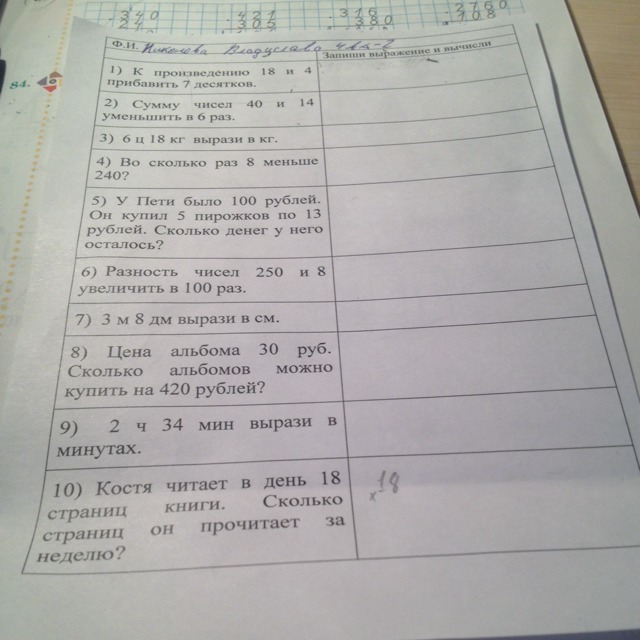 340
421
316
2760
305
380
108
84.
Ф.И. Николаева Владислава
Запиши выражение и вычисли
1) К произведению 18 и 4
прибавить 7 десятков.
2) Сумму чисел 40 и 14
уменьшить в 6 раз.
3) 6 ц 18 кг вырази в кг.
4) Во сколько раз 8 меньше
240?
5) У Пети было 100 рублей.
Он купил 5 пирожков по 13
рублей. Сколько денег у него
осталось?
6) Разность чисел 250 и 8
увеличить в 100 раз.
7) 3 м 8 дм вырази в см.
8) Цена альбома 30 руб.
Сколько альбомов можно
купить на 420 рублей?
9) 2 ч 34 мин вырази в
минутах.
10) Костя читает в день 18
страниц книги. Сколько
страниц он прочитает за
неделю?
18
х